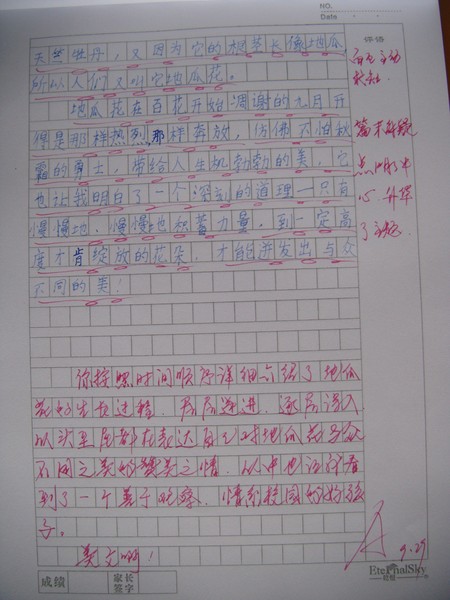 NO.
Date
评语
天竺牡丹，又因为它的根茎长像地瓜
所以人们又叫它地瓜花。
地瓜花在百花开始凋谢的九月开
得是那样热烈，那样奔放，仿佛不怕秋
霜的勇士，带给人生机勃勃的美，它
也让我明白了一个深刻的道理—只有
慢慢地、慢慢地积蓄力量，到一定高
度才肯绽放的花朵，才能迸发出与众
不同的美！
篇末
点明中
心，升华
了主题。
你按照时间顺序详细介绍了地瓜
花的生长过程，层层递进，逐层深入
从头至尾都在表达自己对地瓜花与众
不同之美的赞美之情。从中也让我看
到了一个善于观察、情系校园的好孩
子。
美文啊！
A
9.29
成绩
家长
签字
EteRnalSky